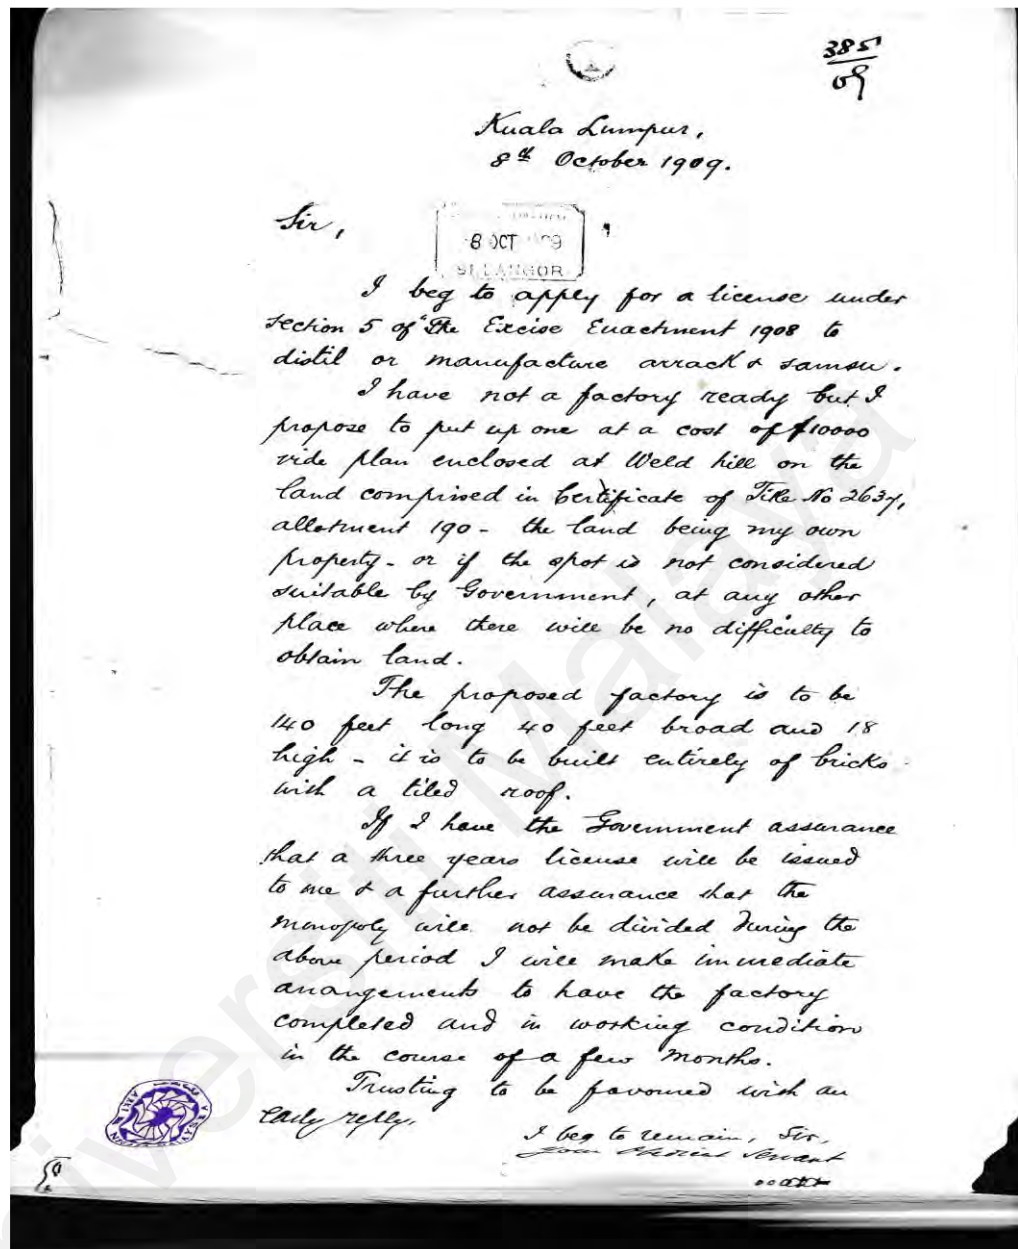 385
09
Kuala Lumpur,
8th October 1909.
Sir,
8 OCT 09
SELANGOR
I beg to apply for a license under
section 5 of "The Excise Enactment 1908 to
distil or manufacture arrack & samsu.
I have not a factory ready but I
propose to put up one at a cost of $10000
vide plan enclosed at Weld hill on the
land comprised in Certificate of Title No 2637,
allotment 190 - the land being my own
property - or if the spot is not considered
suitable by Government, at any other
place where there will be no difficulty to
obtain land.
The proposed factory is to be
140 feet long 40 feet broad and 18
high - it is to be built entirely of bricks
with a tiled roof.
If I have the Government assurance
that a three years license will be issued
to me & a further assurance that the
monopoly will not be divided during the
above period I will make immediate
arrangements to have the factory
completed and in working condition
in the course of a few months.
Trusting to be favoured with an
early reply,
I beg to remain, Sir,
Your Obedient Servant
Universiti Malaya